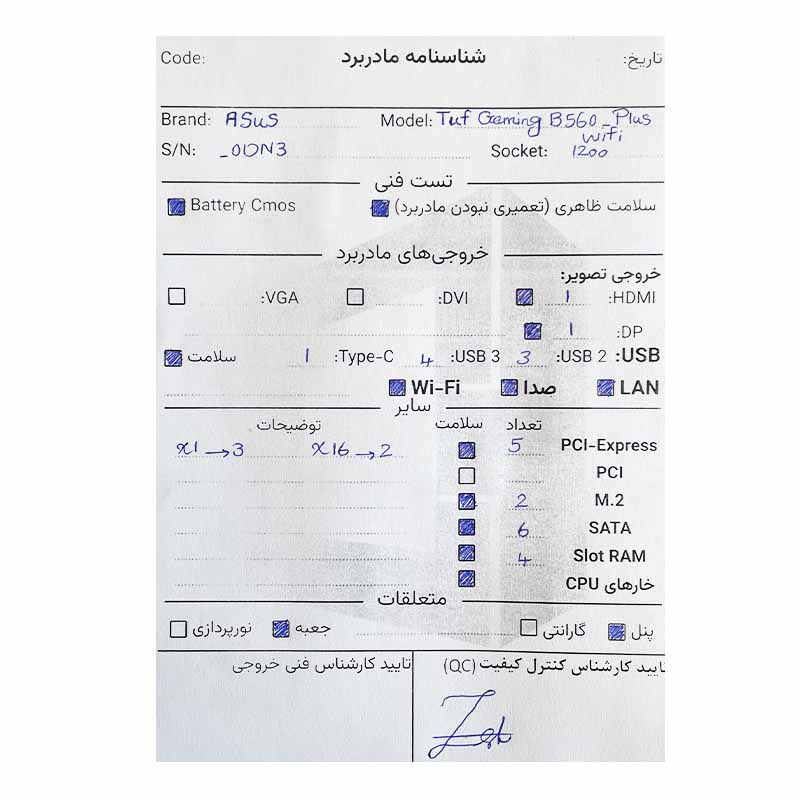 تاریخ: شناسنامه مادربرد Code:
Brand: ASUS Model: Tuf Gaming B560_Plus wifi
S/N: _0DN3 Socket: 1200
تست فنی
سلامت ظاهری (تعمیری نبودن مادربرد) Battery Cmos
خروجی‌های مادربرد
خروجی تصویر:
HDMI: 1 DVI: VGA:
DP: 1
USB: USB 2: 3 USB 3: 4 Type-C: 1 سلامت
LAN صدا Wi-Fi
سایر
تعداد سلامت توضیحات
PCI-Express 5 x16→2 x1→3
PCI
M.2 2
SATA 6
Slot RAM 4
خارهای CPU
متعلقات
پنل گارانتی جعبه نورپردازی
تایید کارشناس کنترل کیفیت (QC) تایید کارشناس فنی خروجی